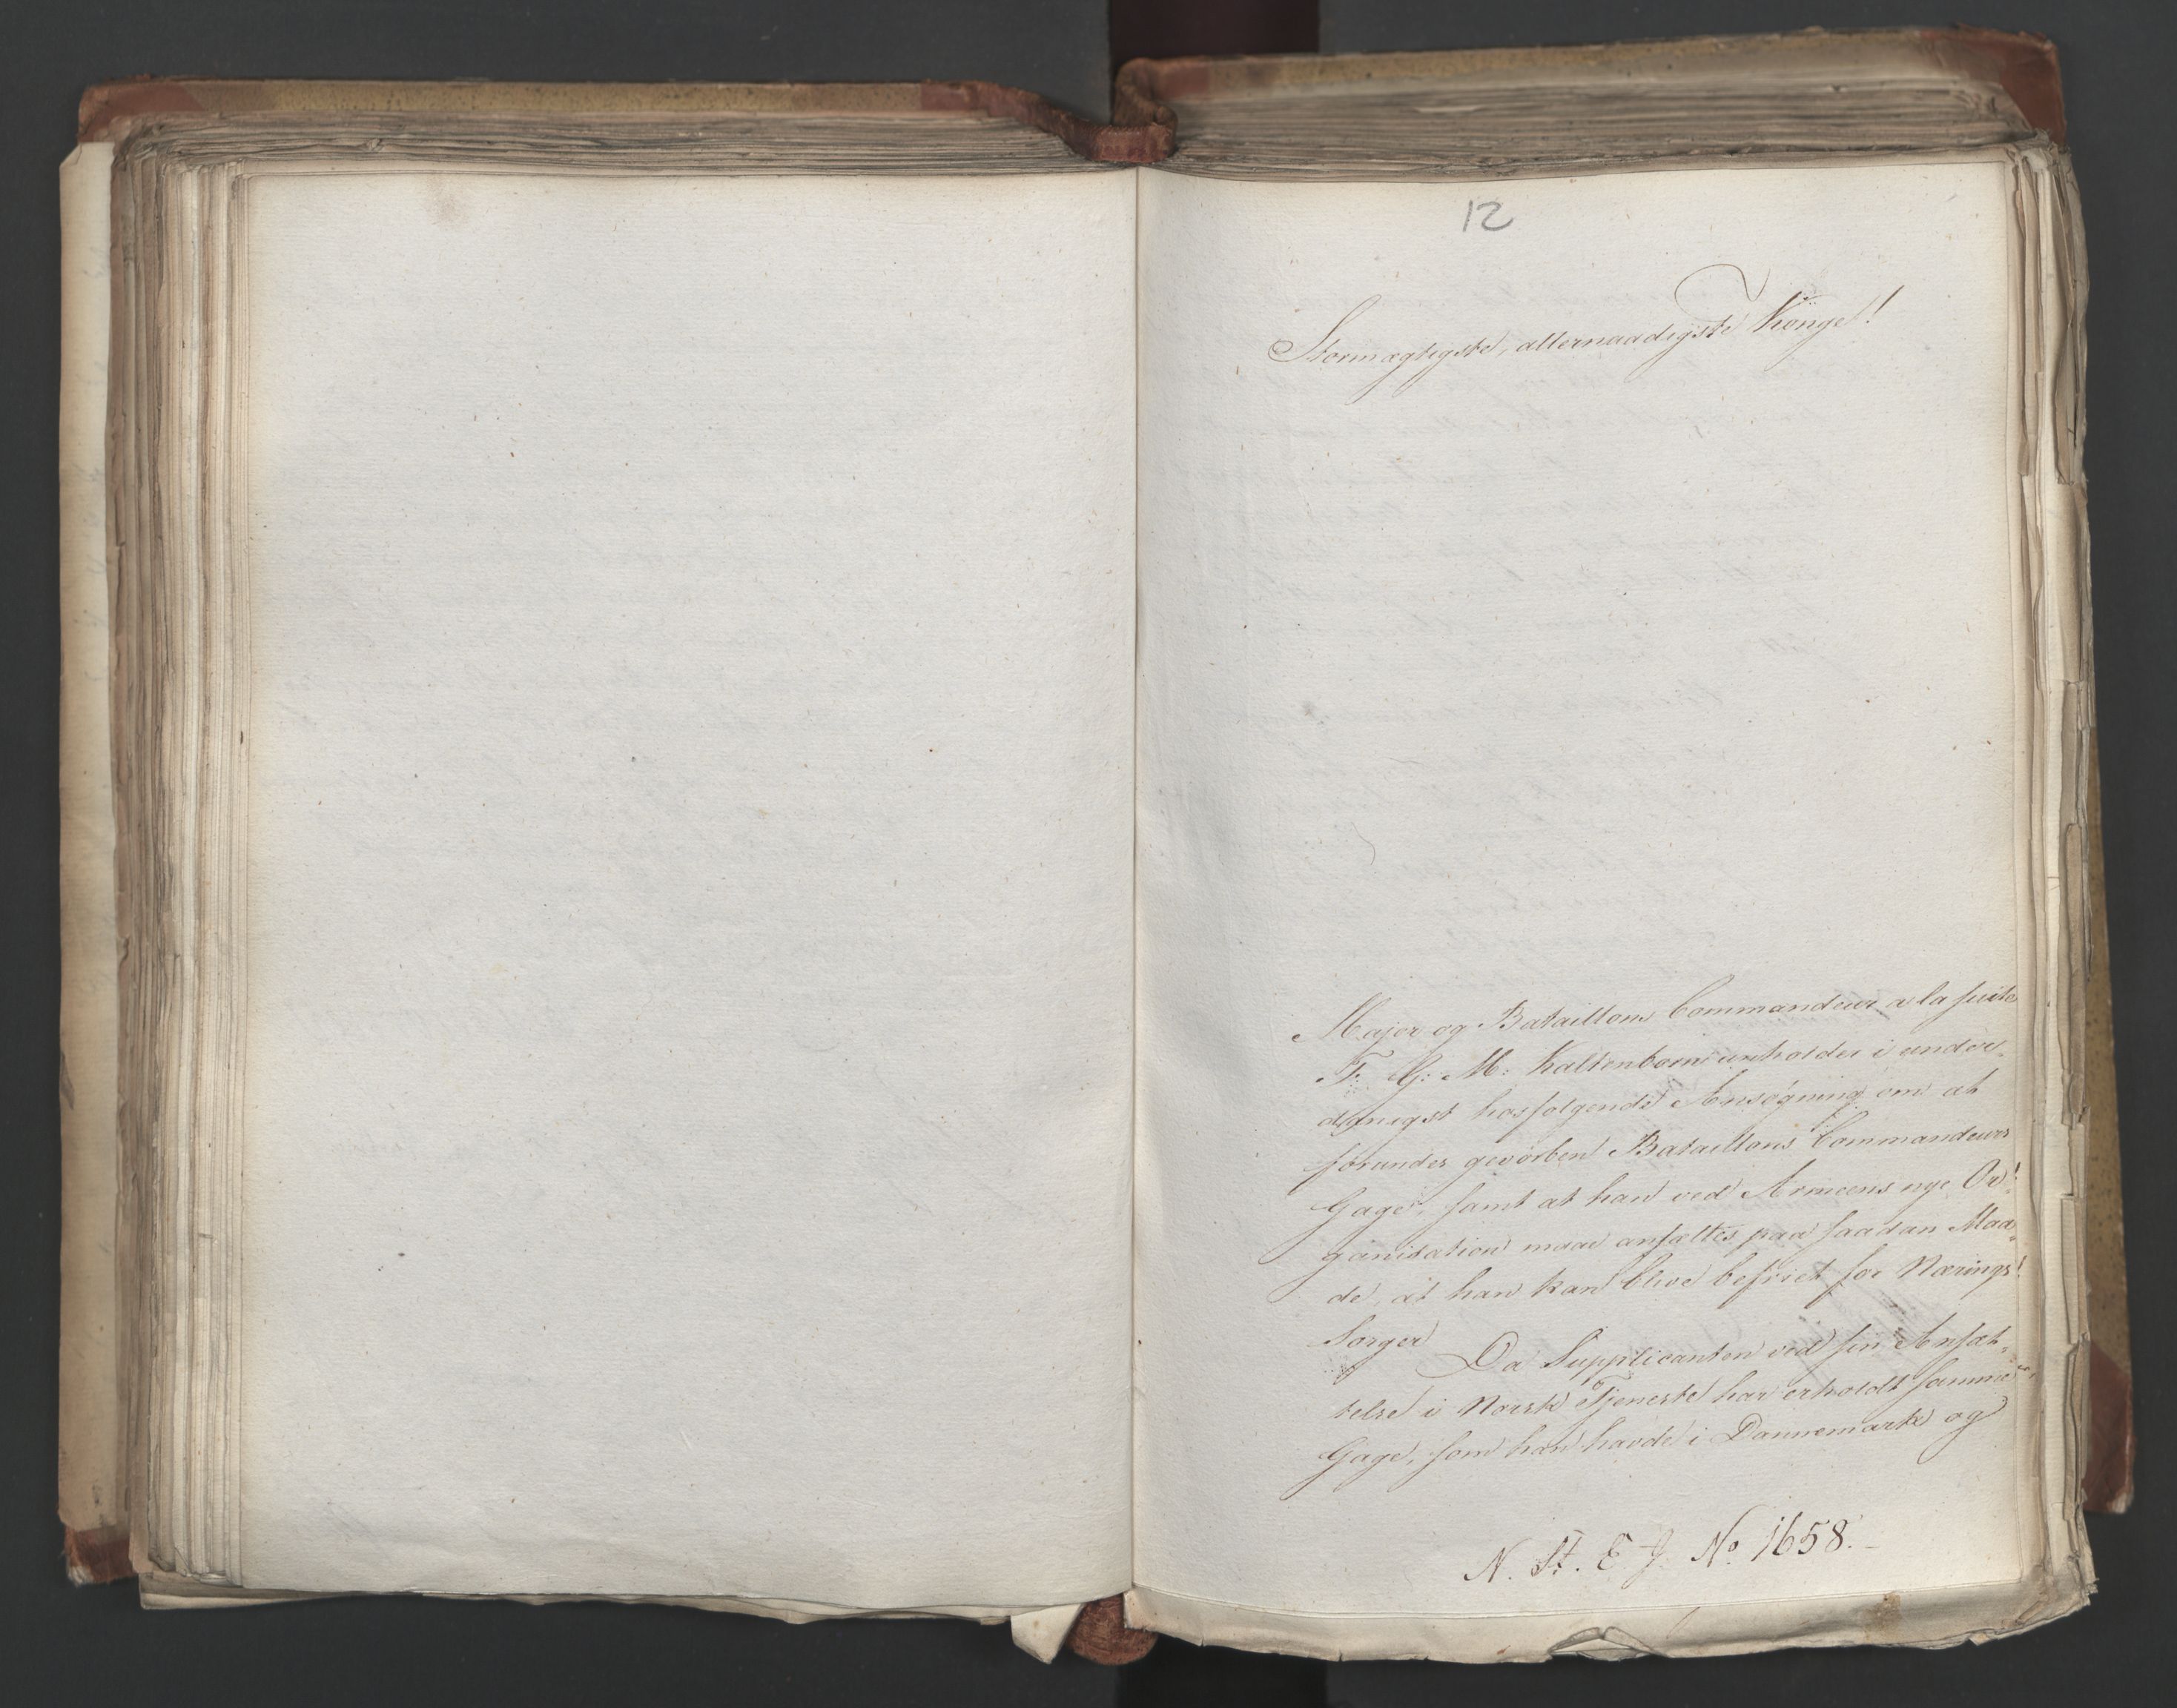 12
Stormægtigste, allernaadigste Konge!
Major og Bataillons Commandeur a la suite
F. G: M: Kaltenborn anholder i under„
dgnigst hosfølgende Ansøgning om at
forundes geworben Bataillons Commandeurs
Gage, samt at han ved Armeens nye Or„
ganisation maae ansættes paa saadan Maa„
de, at han kan blive befriet for Nærings
Sorger
Da Supplicanten ved sin Ansæt„
telse i Norsk Tjeneste har erholdt samme
Gage, som han havde i Dannemark og
N. St. E. J. No. 1658.